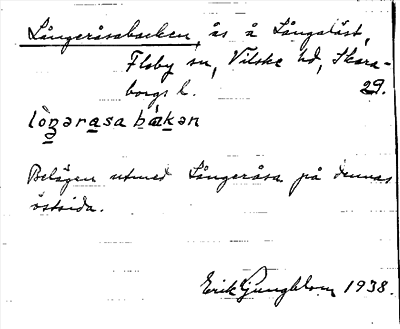 Långeråsabacken, ås å Långalöst,
Floby sn, Vilske hd, Skara-
borgs l. 29.
lòŋərasa bàkən
Belägen utmed Långeråsa på dennas
östsida.
Erik Ljungblom 1938.